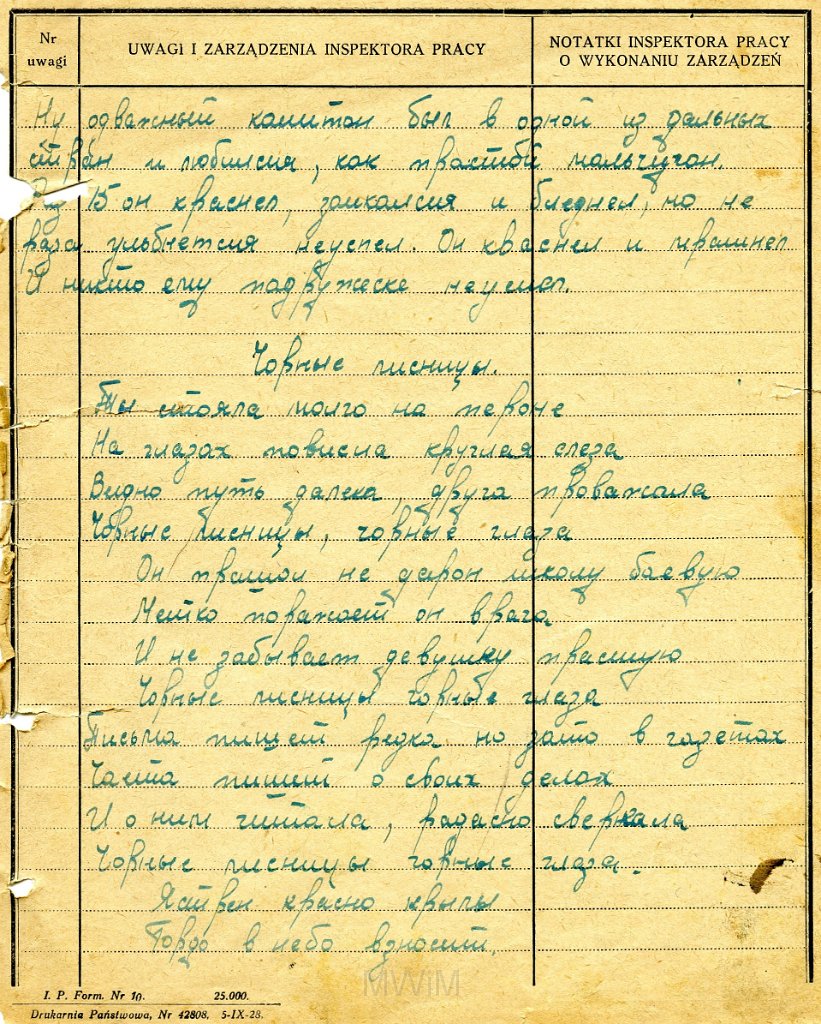 Nr
uwagi
UWAGI I ZARZĄDZENIA INSPEKTORA PRACY
NOTATKI INSPEKTORA PRACY
O WYKONANIU ZARZĄDZEŃ
Ну одважный капитан был в одной из дальных
стран и любился, как простой мальчуган.
Раз 15 он краснел, заикался и бледнел, но не
раза улыбнется неуспел. Он краснел и мрашнел
И никто ему падружеске неуспел.
Чорные писницы.
Ты стояла молго на пероне
На глазах повисла круглая слеза
Видно путь далека, друга проважала
Чорные писницы, чорные глаза
Он прашол не дарон школу баевую
Метко поражает он врага
И не забывает девушку прасную
Чорные писницы чорные глаза
Письма пишет редка но зато в газетах
Часта пишет о своих делах
И о ним читала, радасно сверкала
Чорные писницы чорные глаза.
Ястрен красно крылы
Гордо в небо взносит,
MWiM
I. P. Form. Nr 10. 25.000.
Drukarnia Państwowa, Nr 42808. 5-IX-28.